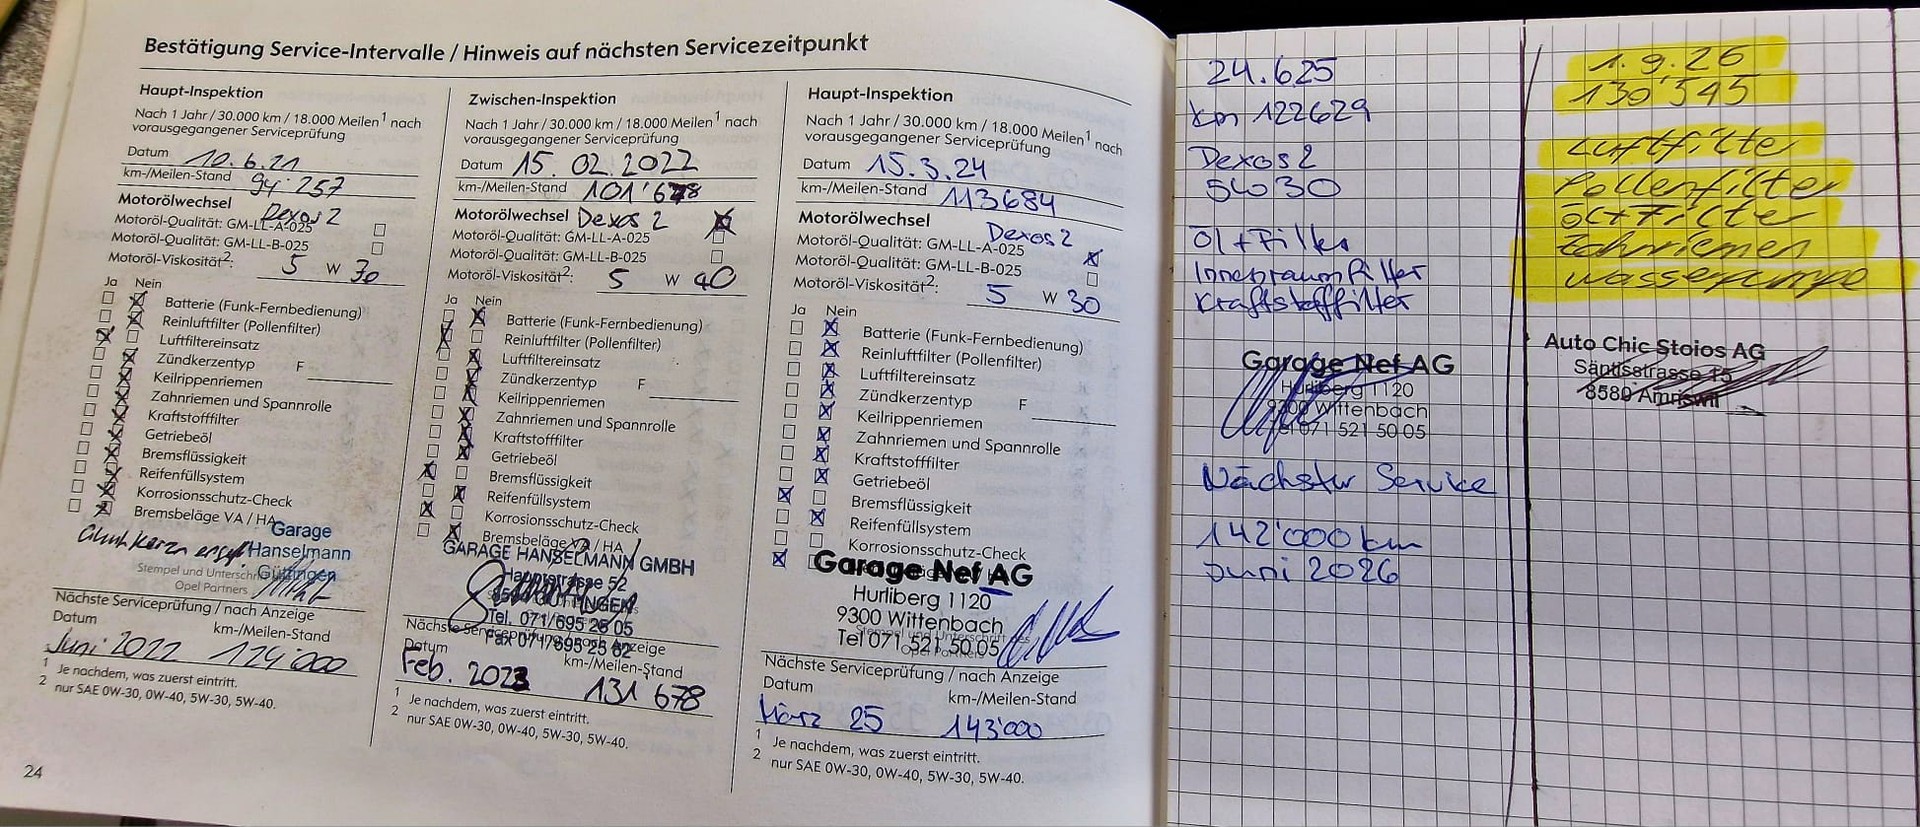 Bestätigung Service-Intervalle / Hinweis auf nächsten Servicezeitpunkt
Haupt-Inspektion
Nach 1 Jahr / 30.000 km / 18.000 Meilen¹ nach
vorausgegangener Serviceprüfung
Datum 10.6.21
km-/Meilen-Stand 94'257
Motorölwechsel
Dexos 2
Motoröl-Qualität: GM-LL-A-025
Motoröl-Qualität: GM-LL-B-025
Motoröl-Viskosität²: 5 W 30
Ja Nein
Batterie (Funk-Fernbedienung)
Reinluftfilter (Pollenfilter)
Luftfiltereinsatz
Zündkerzentyp F
Keilrippenriemen
Zahnriemen und Spannrolle
Kraftstofffilter
Getriebeöl
Bremsflüssigkeit
Reifenfüllsystem
Korrosionsschutz-Check
Bremsbeläge VA / HA
Garage
Hanselmann
Güttingen
Stempel und Unterschrift
Opel Partners
Nächste Serviceprüfung / nach Anzeige
Datum km-/Meilen-Stand
Juni 2022 124'000
1 Je nachdem, was zuerst eintritt.
2 nur SAE 0W-30, 0W-40, 5W-30, 5W-40.
24
Zwischen-Inspektion
Nach 1 Jahr / 30.000 km / 18.000 Meilen¹ nach
vorausgegangener Serviceprüfung
Datum 15.02.2022
km-/Meilen-Stand 101'678
Motorölwechsel Dexos 2
Motoröl-Qualität: GM-LL-A-025
Motoröl-Qualität: GM-LL-B-025
Motoröl-Viskosität²: 5 W 40
Ja Nein
Batterie (Funk-Fernbedienung)
Reinluftfilter (Pollenfilter)
Luftfiltereinsatz
Zündkerzentyp F
Keilrippenriemen
Zahnriemen und Spannrolle
Kraftstofffilter
Getriebeöl
Bremsflüssigkeit
Reifenfüllsystem
Korrosionsschutz-Check
Bremsbeläge VA / HA
GARAGE HANSELMANN GMBH
Hauptstrasse 52
GÜTTINGEN
Tel. 071/695 26 05
Fax 071/695 25 62
Nächste Serviceprüfung / nach Anzeige
Datum km-/Meilen-Stand
Feb. 2023 131 678
1 Je nachdem, was zuerst eintritt.
2 nur SAE 0W-30, 0W-40, 5W-30, 5W-40.
Haupt-Inspektion
Nach 1 Jahr / 30.000 km / 18.000 Meilen¹ nach
vorausgegangener Serviceprüfung
Datum 15.3.24
km-/Meilen-Stand 113684
Motorölwechsel
Dexos 2
Motoröl-Qualität: GM-LL-A-025
Motoröl-Qualität: GM-LL-B-025
Motoröl-Viskosität²: 5 W 30
Ja Nein
Batterie (Funk-Fernbedienung)
Reinluftfilter (Pollenfilter)
Luftfiltereinsatz
Zündkerzentyp F
Keilrippenriemen
Zahnriemen und Spannrolle
Kraftstofffilter
Getriebeöl
Bremsflüssigkeit
Reifenfüllsystem
Korrosionsschutz-Check
Garage Nef AG
Hurliberg 1120
9300 Wittenbach
Tel 071 521 50 05
Nächste Serviceprüfung / nach Anzeige
Datum km-/Meilen-Stand
März 25 143'000
1 Je nachdem, was zuerst eintritt.
2 nur SAE 0W-30, 0W-40, 5W-30, 5W-40.
24.6.25
km 122629
Dexos 2
5W30
Öl + Filter
Innenraumfilter
Kraftstofffilter
Garage Nef AG
Hurliberg 1120
9300 Wittenbach
Tel 071 521 50 05
Nächster Service
142'000 km
Juni 2026
1.9.26
130'545
Luftfilter
Pollenfilter
Öl + Filter
Zahnriemen
Wasserpumpe
Auto Chic Stoios AG
Säntisstrasse 15
8580 Amriswil